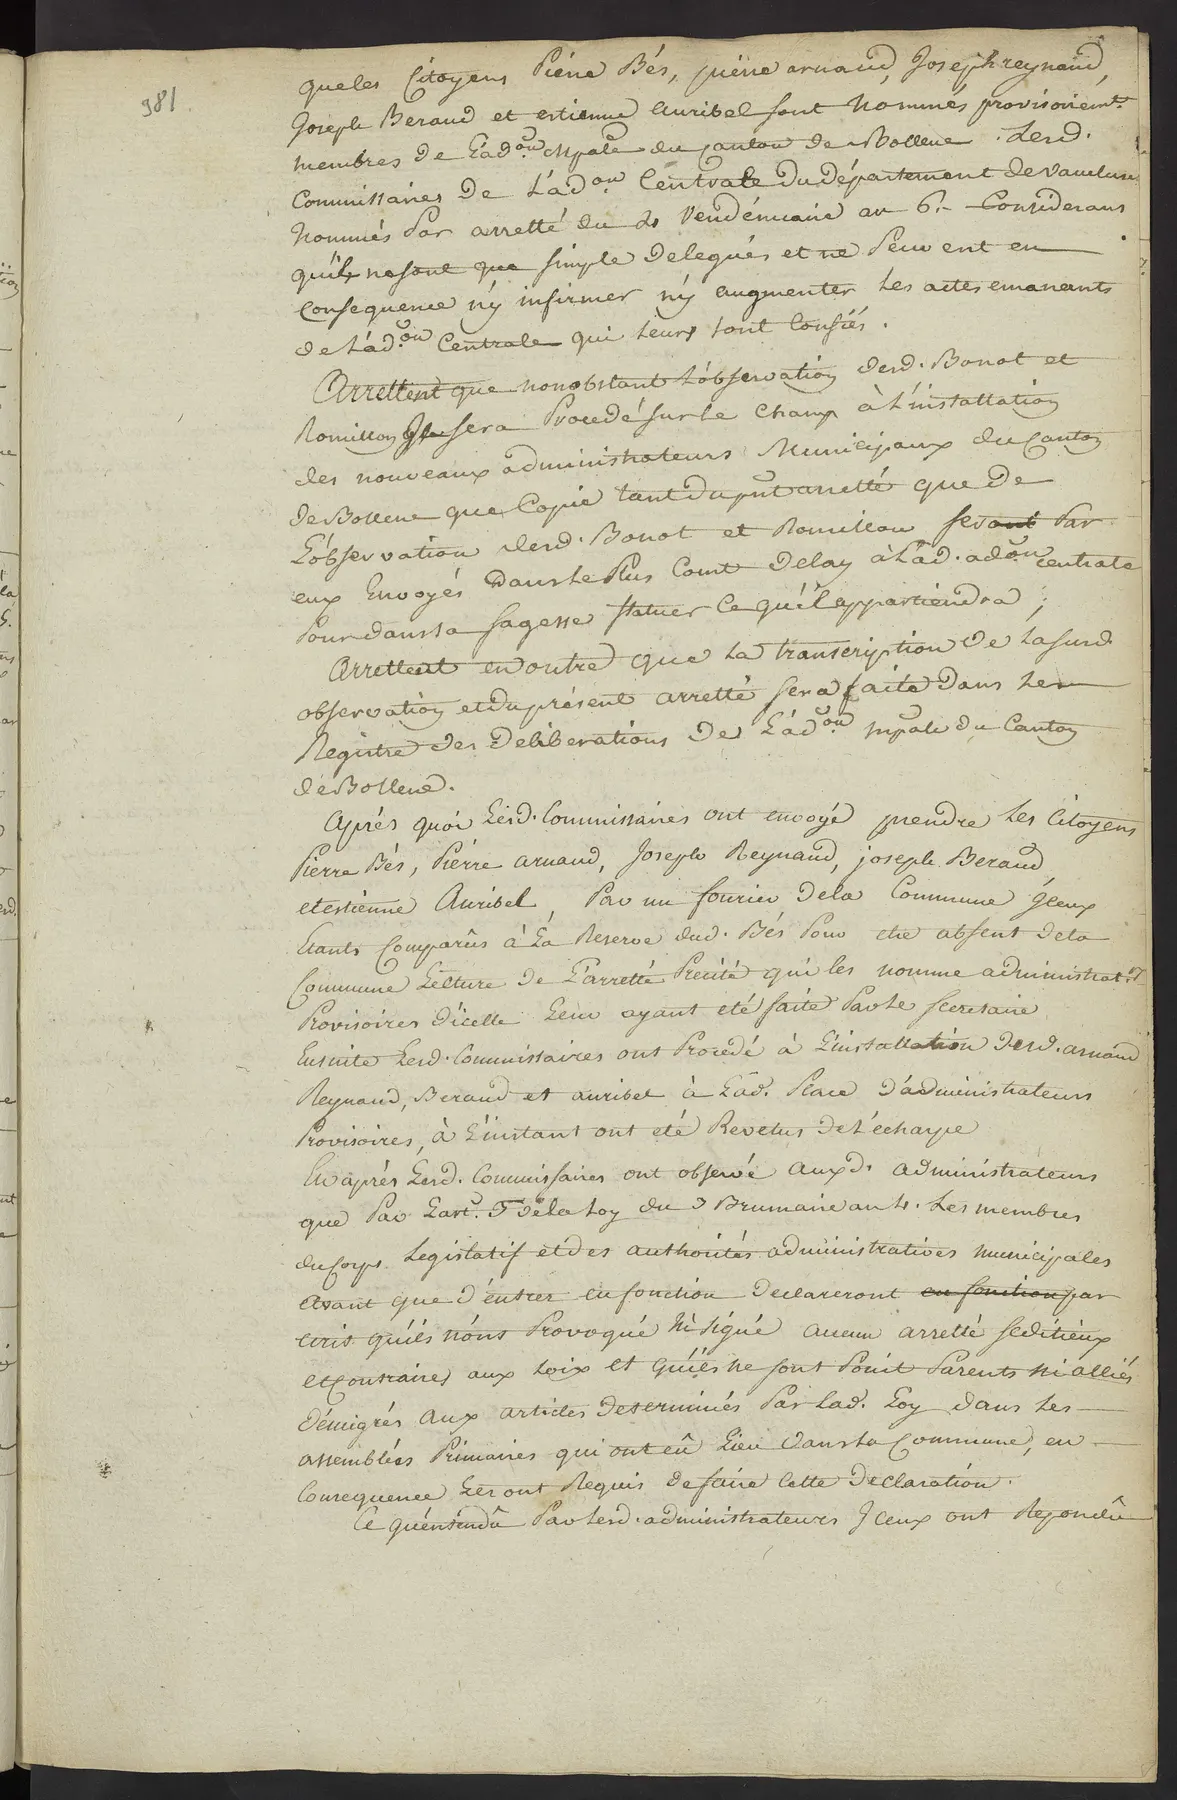 981
que les Citoyens Piérre Bés, piérre arnaud, Joseph reynaud,
Joseph Beraud et estienne auribel sont Nommés provisoiremt.
membres de L'ad.on mpale du canton de Bollene. Lesd.
Commissaires De L'ad.on Centrale du département de vaucluse
Nommés Par arretté du Vendémiaire an 6.- Considerans
qu'ils ne sont que simple Delegués et ne Peuvent en
Consequence n'ÿ infirmer n'ÿ augmenter Les actes emaneants
de L'ad.on Centrale qui leurs sont Confiés.
Arrettent que nonobstant L'observation desd. Bonot et
Romillon Il sera Procedé sur le champ à L'installation
des nouveaux administrateurs Municipaux du Canton
de Bollene que Copie tant du pnt arretté que de
L'observation desd. Bonot et Romillon seront Par
eux Envoyés Dans Le Plus Court Delay à L'ad. ad.on Centrale
Pour dans sa sagesse statuer ce qu'il appartiendra;
Arrettent en outre que La transcription De La susd.
observation et du présent arretté sera faite Dans Le
Registre des Deliberations De L'ad.on mpale du Canton
de Bollene.
Après quoi Lesd. Commissaires ont envoyé prendre Les Citoyens
Pierre Bés, Piérre arnaud, Joseph Reynaud, joseph Beraud,
et estienne Auribel, Par un fourier De la Commune Iceux
Etants Comparûs à La Reserve dud. Bés Pour etre absent de la
Commune Lecture De L'arretté Précité qui les nomme administrat.rs
Provisoires d'icelle Leur ayant eté faite Par Le secretaire
Ensuite Lesd. Commissaires ont Procedé à L'installation Desd. arnaud
Reynaud, Beraud et auribel à Lad. Place d'administrateurs
Provisoires, à L'instant ont eté Revetus De L'écharpe
En après Lesd. Commissaires ont observé aux d. administrateurs
que Par L'art. De La Loy du 3 Brumaire an 4. Les membres
du Corps Legislatif et des authorités administratives municipales
avant que d'éntrer en fonction Declareront en fonction par
écris qu'ils n'ons Provoqué Ni signé aucun arretté seditieux
et Contraires aux Loix et qu'ils ne sont Point Parents ni alliés
d'émigrés aux articles Determinés Par Lad. Loy dans Les
assemblées Primaires qui ont eû Lieu Dans La Commune, en
Consequence Les ont Requis de faire Cette Declaration.
Ce qu'entendû Par Lesd. administrateurs Iceux ont Repondû